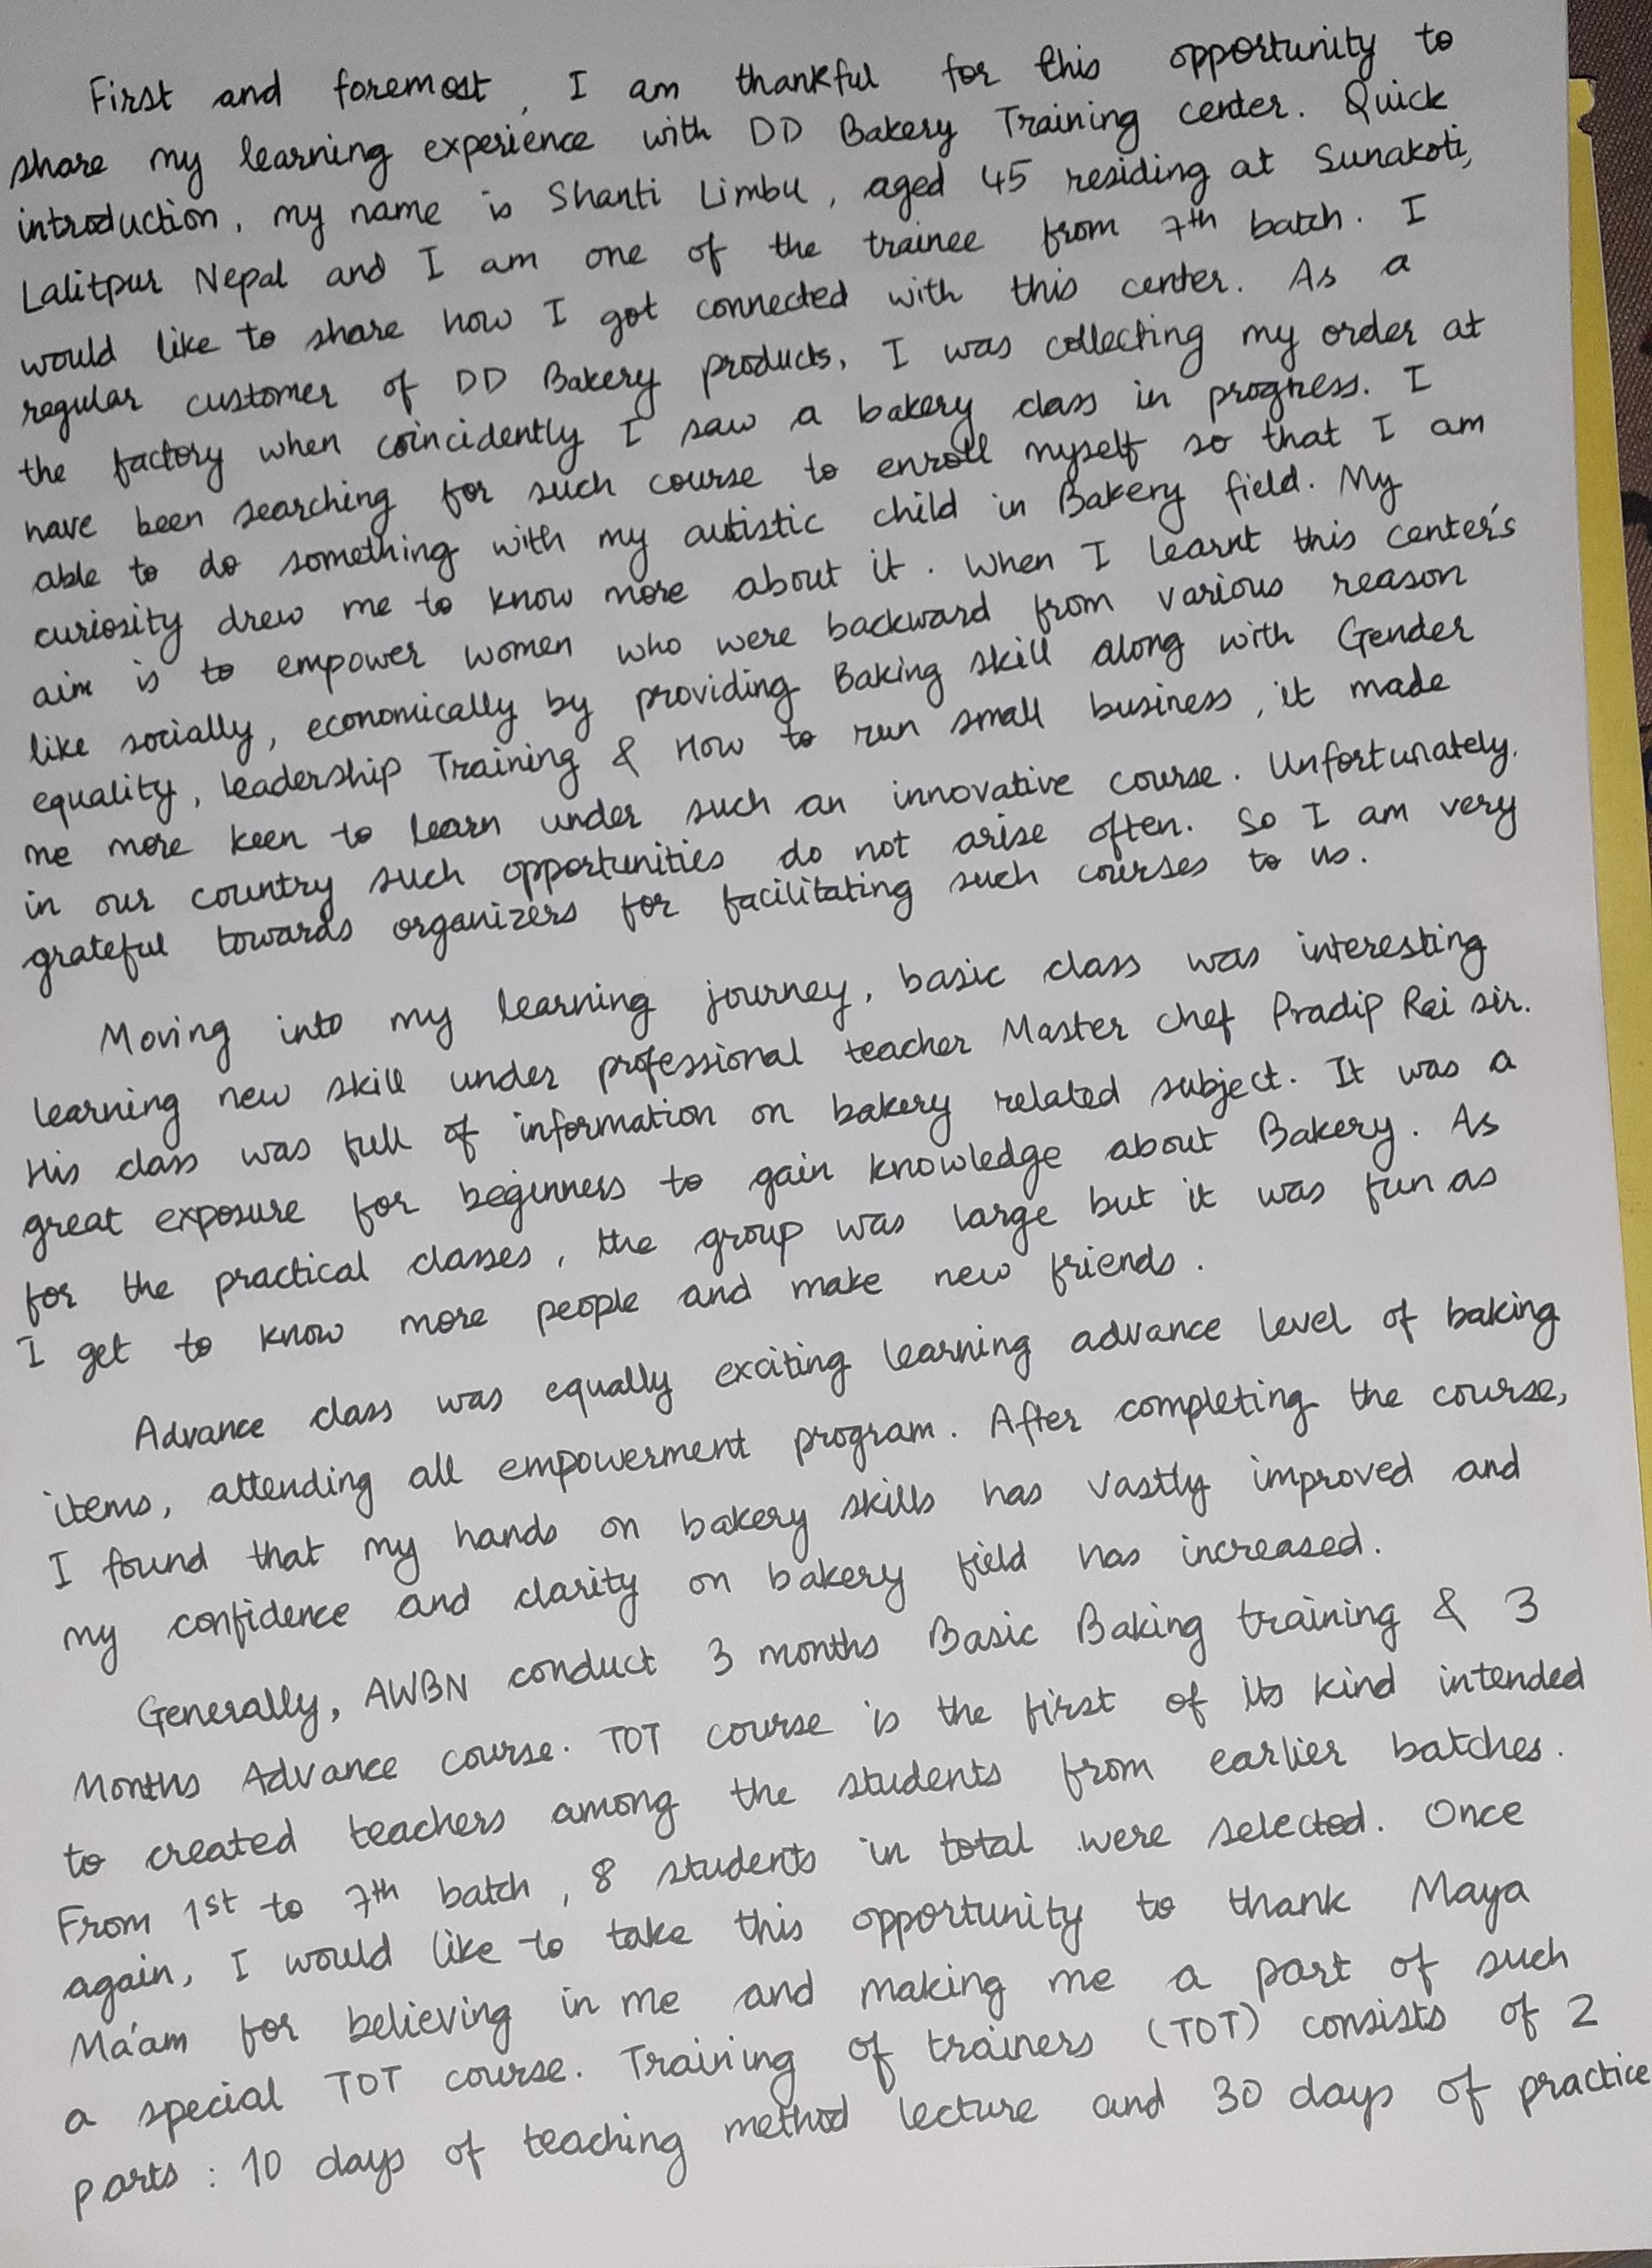 First and foremost, I am thankful for this opportunity to
share my learning experience with DD Bakery Training center. Quick
introduction, my name is Shanti Limbu, aged 45 residing at Sunakoti,
Lalitpur Nepal and I am one of the trainee from 7th batch. I
would like to share how I got connected with this center. As a
regular customer of DD Bakery products, I was collecting my order at
the factory when coincidently I saw a bakery class in progress. I
have been searching for such course to enroll myself so that I am
able to do something with my autistic child in Bakery field. My
curiosity drew me to know more about it. When I learnt this center's
aim is to empower women who were backward from various reason
like socially, economically by providing Baking skill along with Gender
equality, Leadership Training & How to run small business, it made
me more keen to learn under such an innovative course. Unfortunately.
in our country such opportunities do not arise often. So I am very
grateful towards organizers for facilitating such courses to us.
Moving into my learning journey, basic class was interesting
learning new skill under professional teacher Master chef Pradip Rai sir.
His class was full of information on bakery related subject. It was a
great exposure for beginners to gain knowledge about Bakery. As
for the practical classes, the group was large but it was fun as
I get to know more people and make new friends.
Advance class was equally exciting learning advance level of baking
items, attending all empowerment program. After completing the course,
I found that my hands on bakery skills has vastly improved and
my confidence and clarity on bakery field has increased.
Generally, AWBN conduct 3 months Basic Baking training & 3
Months Advance course. TOT course is the first of its kind intended
to created teachers among the students from earlier batches.
From 1st to 7th batch, 8 students in total were selected. Once
again, I would like to take this opportunity to thank Maya
Ma'am for believing in me and making me a part of such
a special TOT course. Training of trainers (TOT) consists of 2
parts : 10 days of teaching method lecture and 30 days of practice